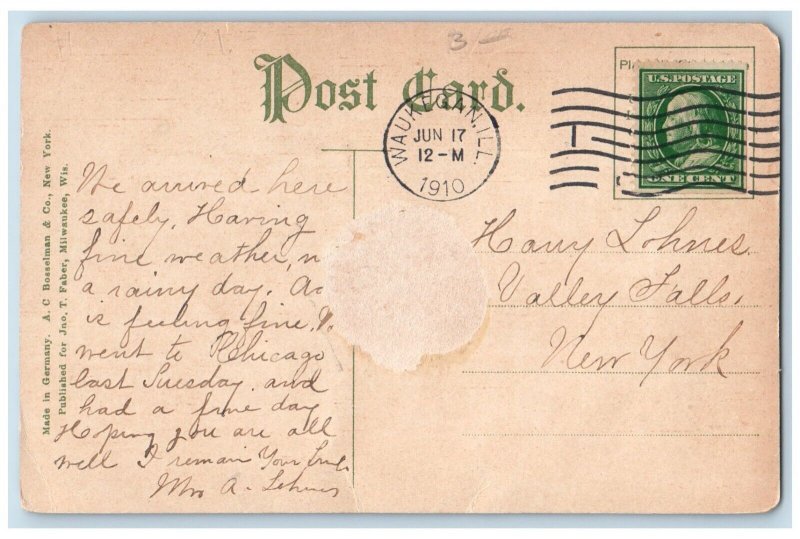 3
Post Card.
U.S. POSTAGE
ONE CENT
WAUKEGAN, ILL.
JUN 17
12-M
1910
Made in Germany. A. C Bosselman & Co., New York.
Published for Jno. T. Faber, Milwaukee, Wis.
We arrived here
safely. Having
fine weather, n
a rainy day.
is feeling fine.
went to Chicago
last Tuesday. and
had a fine day
Hoping you are all
well I remain Your
Mrs A. Lohnes
Harry Lohnes.
Valley Falls.
New York